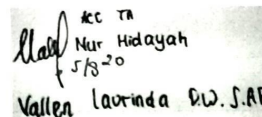 ACC TA
Nur Hidayah
5/8-20
Vallen Laurinda D.W. S.AP